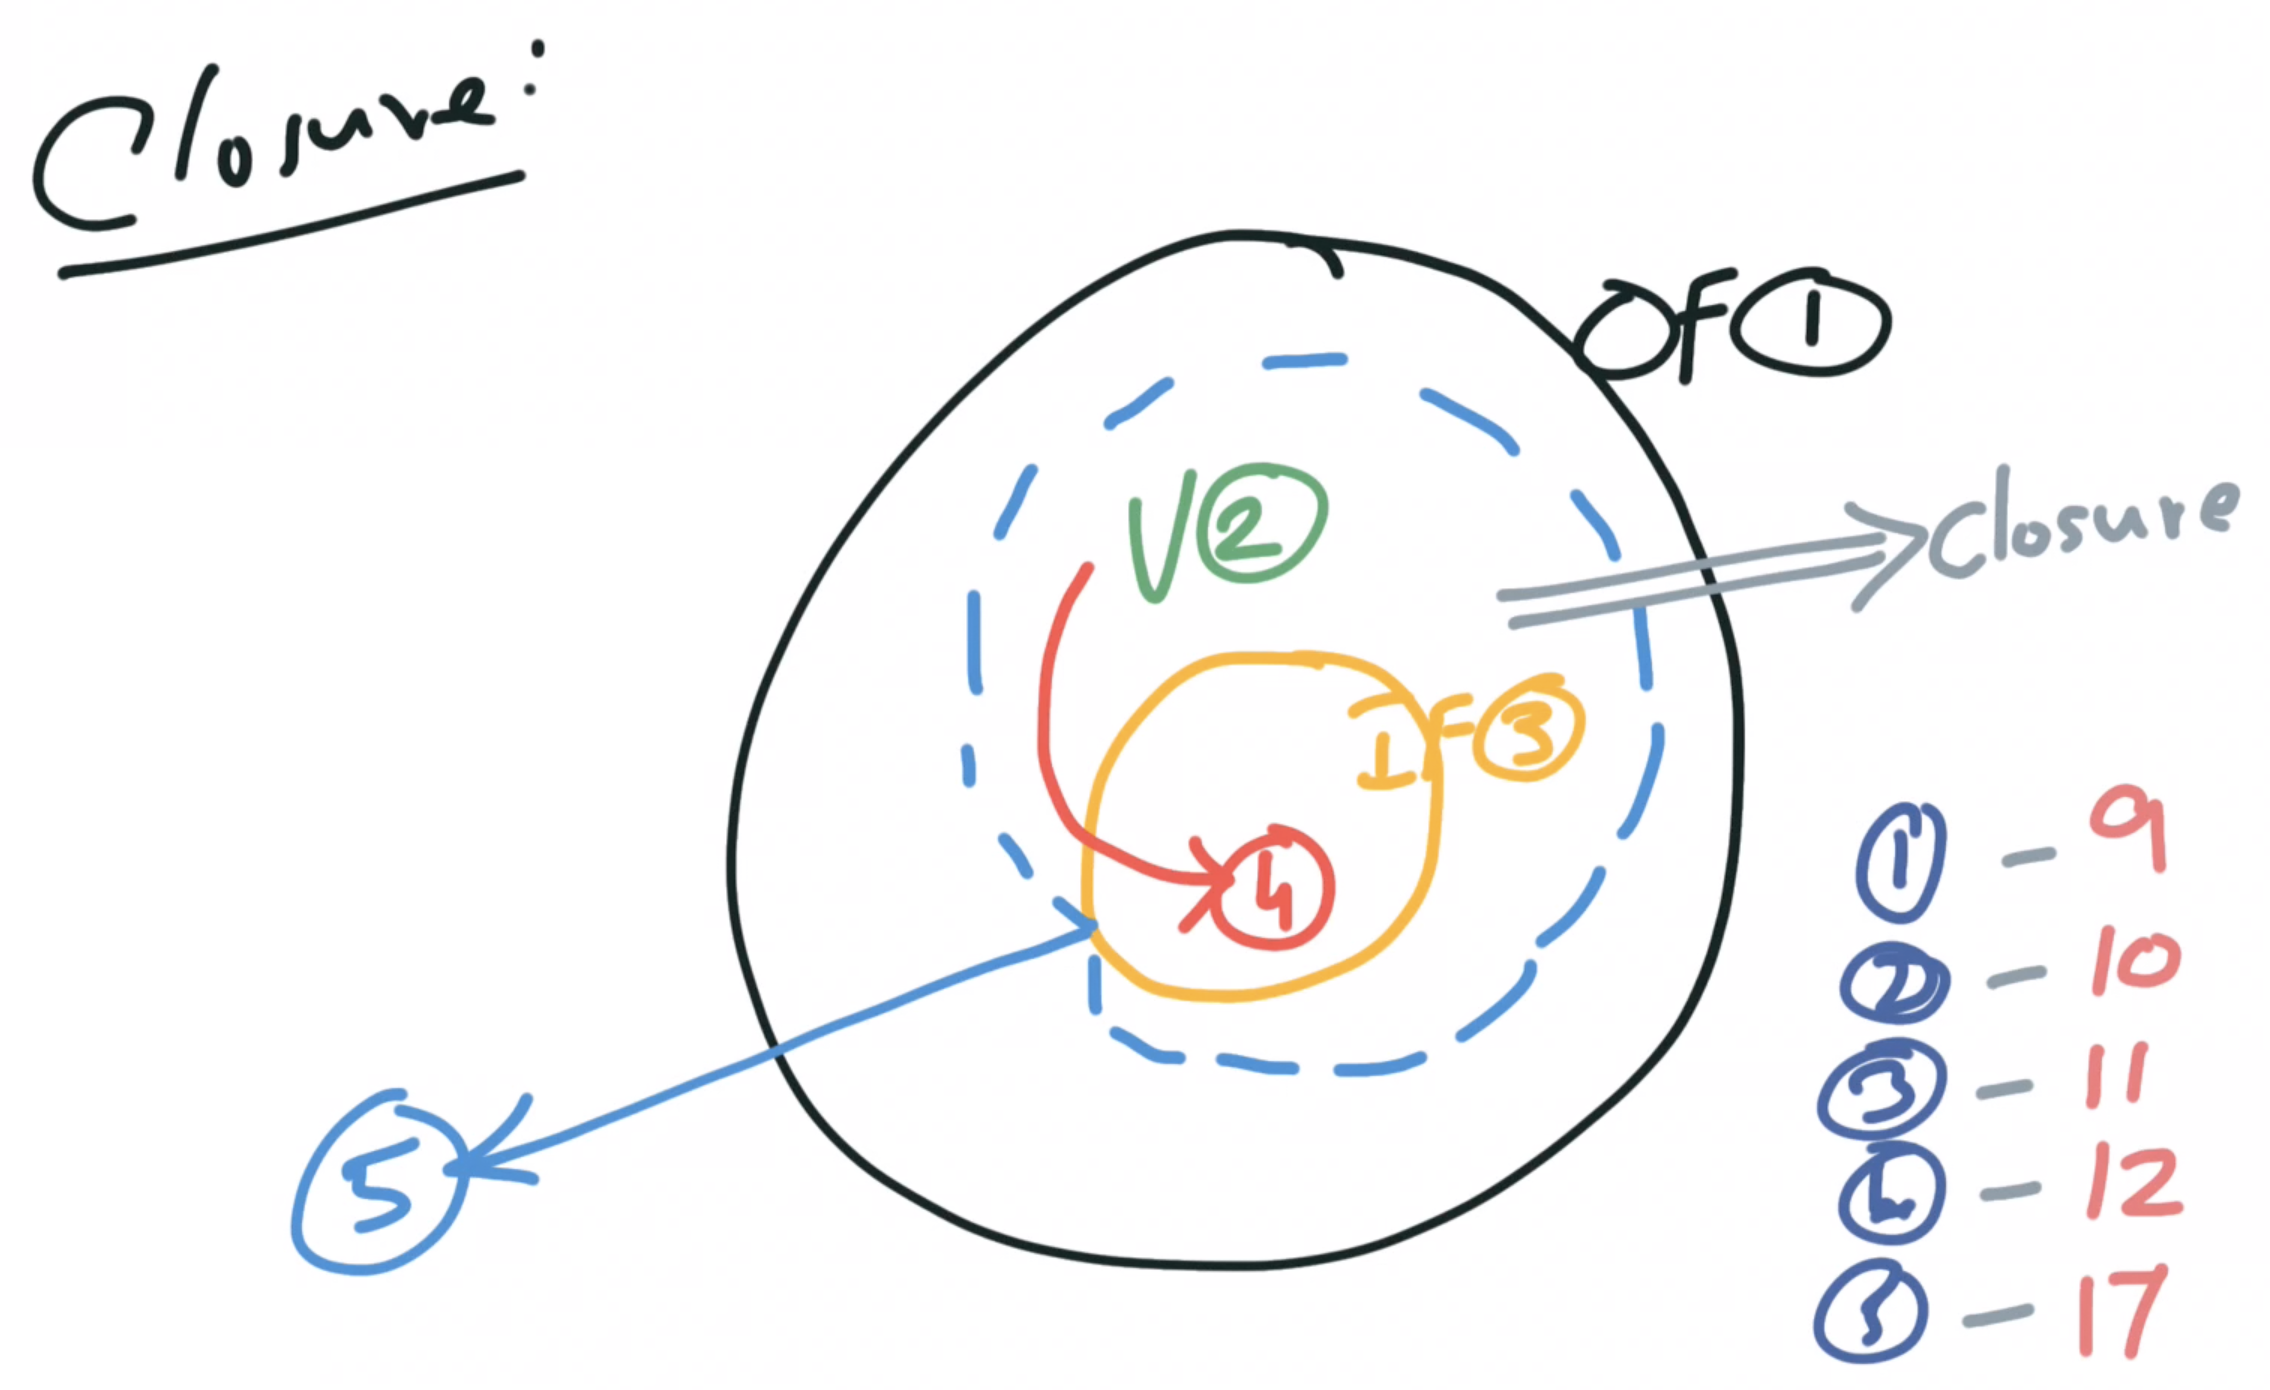 Closure:
OF 1
V 2
Closure
IF 3
4
5
1 - 9
2 - 10
3 - 11
4 - 12
5 - 17